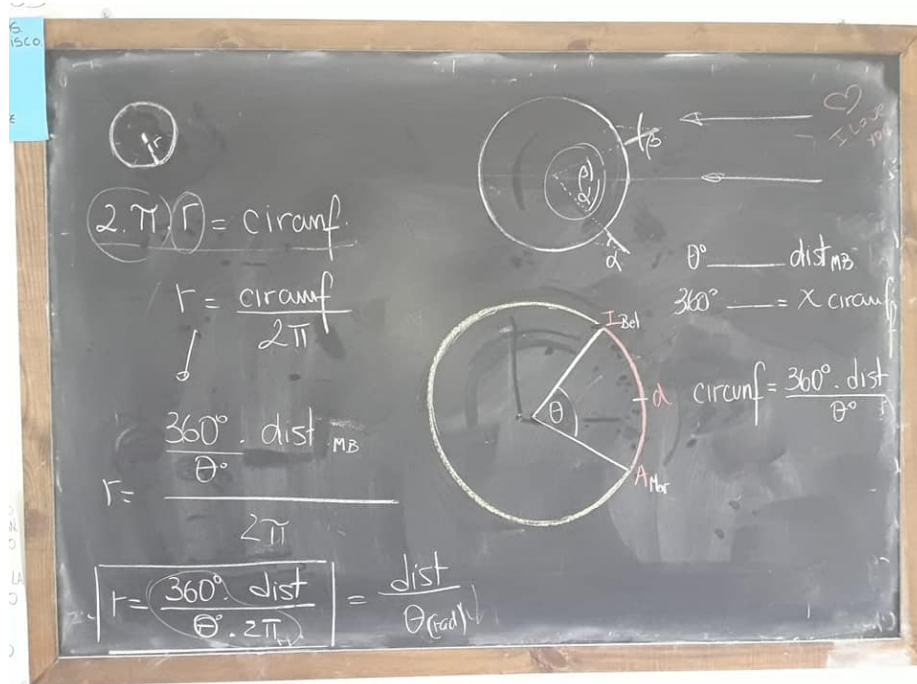 S.
ISCO.
r
2.π.r = circunf.
r = circunf / 2π
r = 360°/θ° . dist MB / 2π
r = 360° . dist / θ° . 2π = dist / θ(rad)
β
β
α
α
I LOVE
YOU
θ° ____ dist MB
360° ___ = x circunf
I Bel
θ
d
A Mar
circunf = 360° . dist / θ°
LA